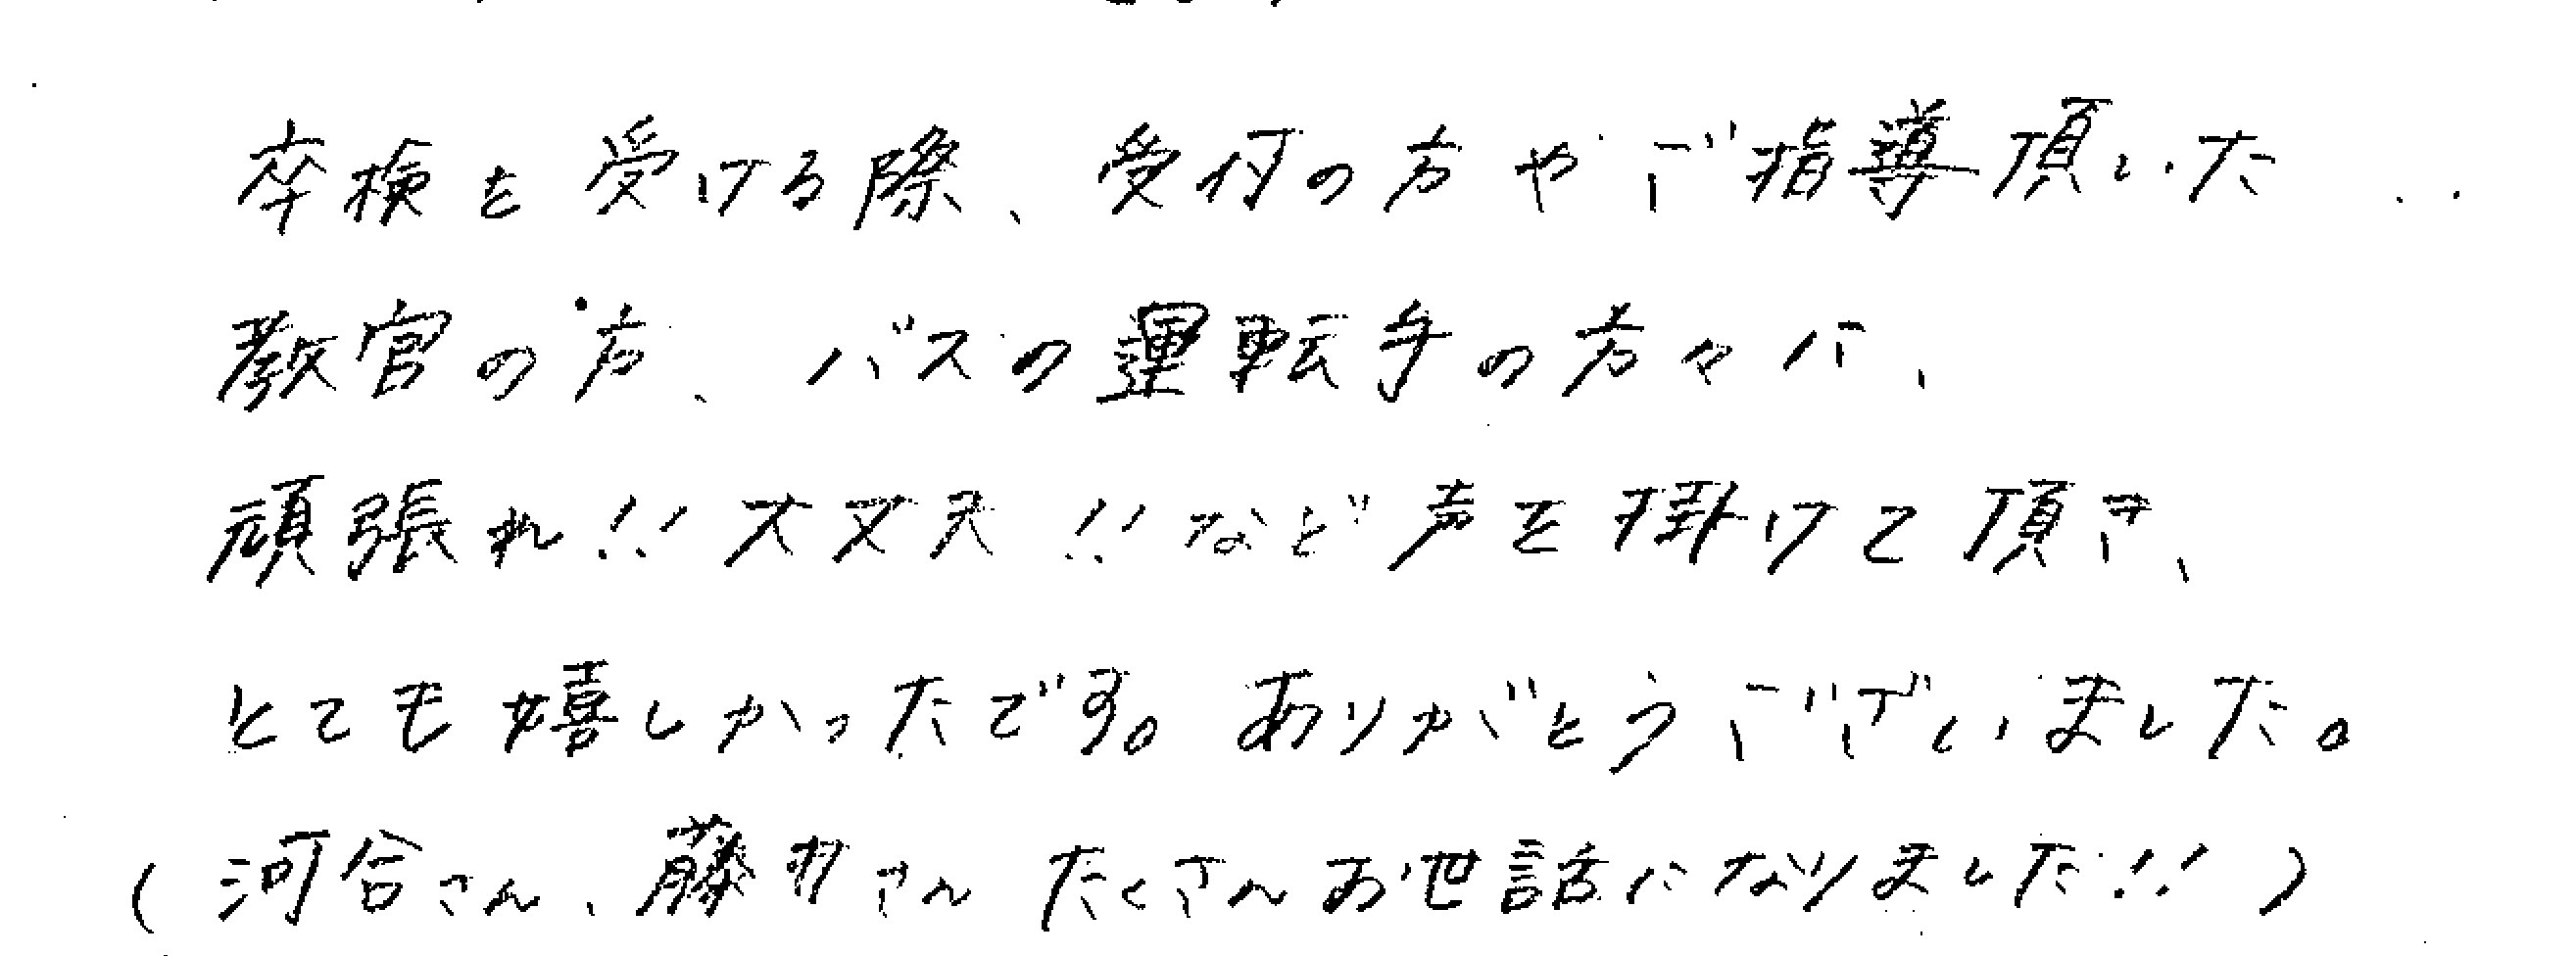 卒検を受ける際、受付の方やご指導頂いた
教官の方、バスの運転手の方々に、
頑張れ!!大丈夫!!など声を掛けて頂き、
とても嬉しかったです。ありがとうございました。
(河合さん、藤井さん たくさんお世話になりました!!)